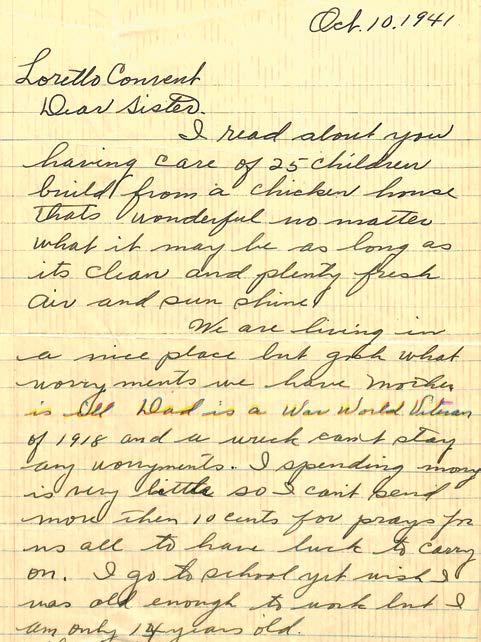 Oct. 10. 1941
Loretto Convent
Dear Sister.
I read about you
having care of 25 children
build from a chicken house
thats wonderful no matter
what it may be as long as
its clean and plenty fresh
air and sun shine!
We are living in
a nice place but gosh what
worryments we have Mother
is Ill Dad is a War World Viteran
of 1918 and a wreck can't stay
any worryments. I spending mony
is very little so I can't send
more then 10 cents for prays for
us all to have luck to carry
on. I go to school yet wish I
was old enough to work but I
am only 14 years old.